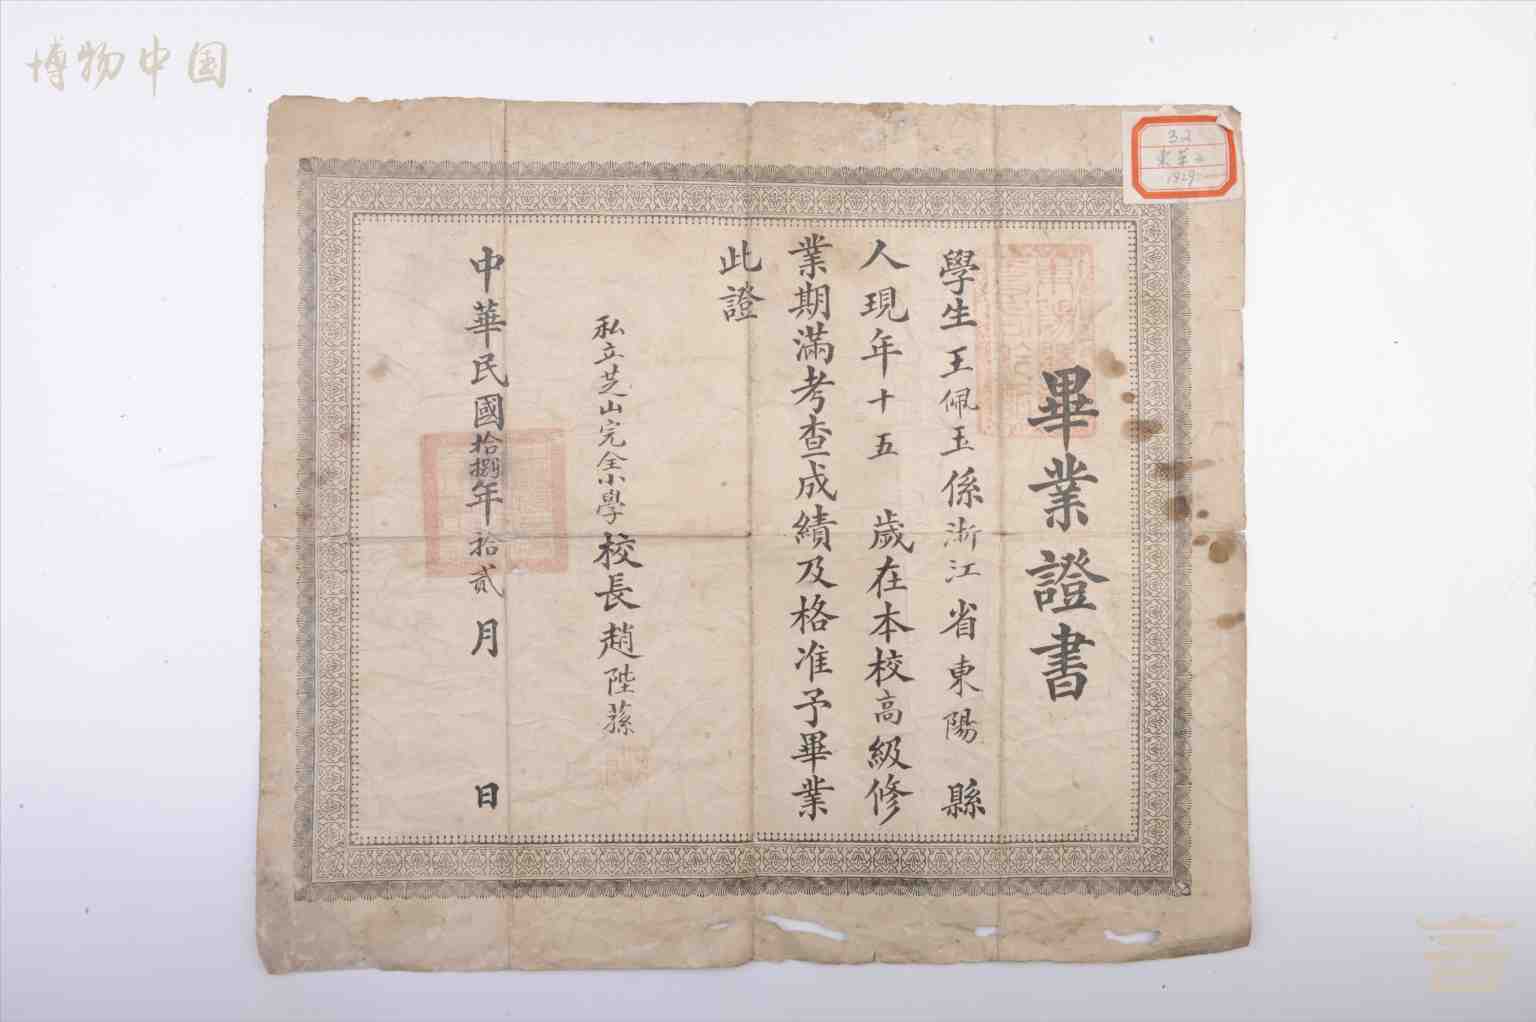 博物中国
32
東羊2
1929
畢業證書
學生王佩玉係浙江省東陽縣
人現年十五歲在本校高級修
業期滿考查成績及格准予畢業
此證
私立芝山完全小學校長趙陛蓀
中華民國拾捌年拾貳月日